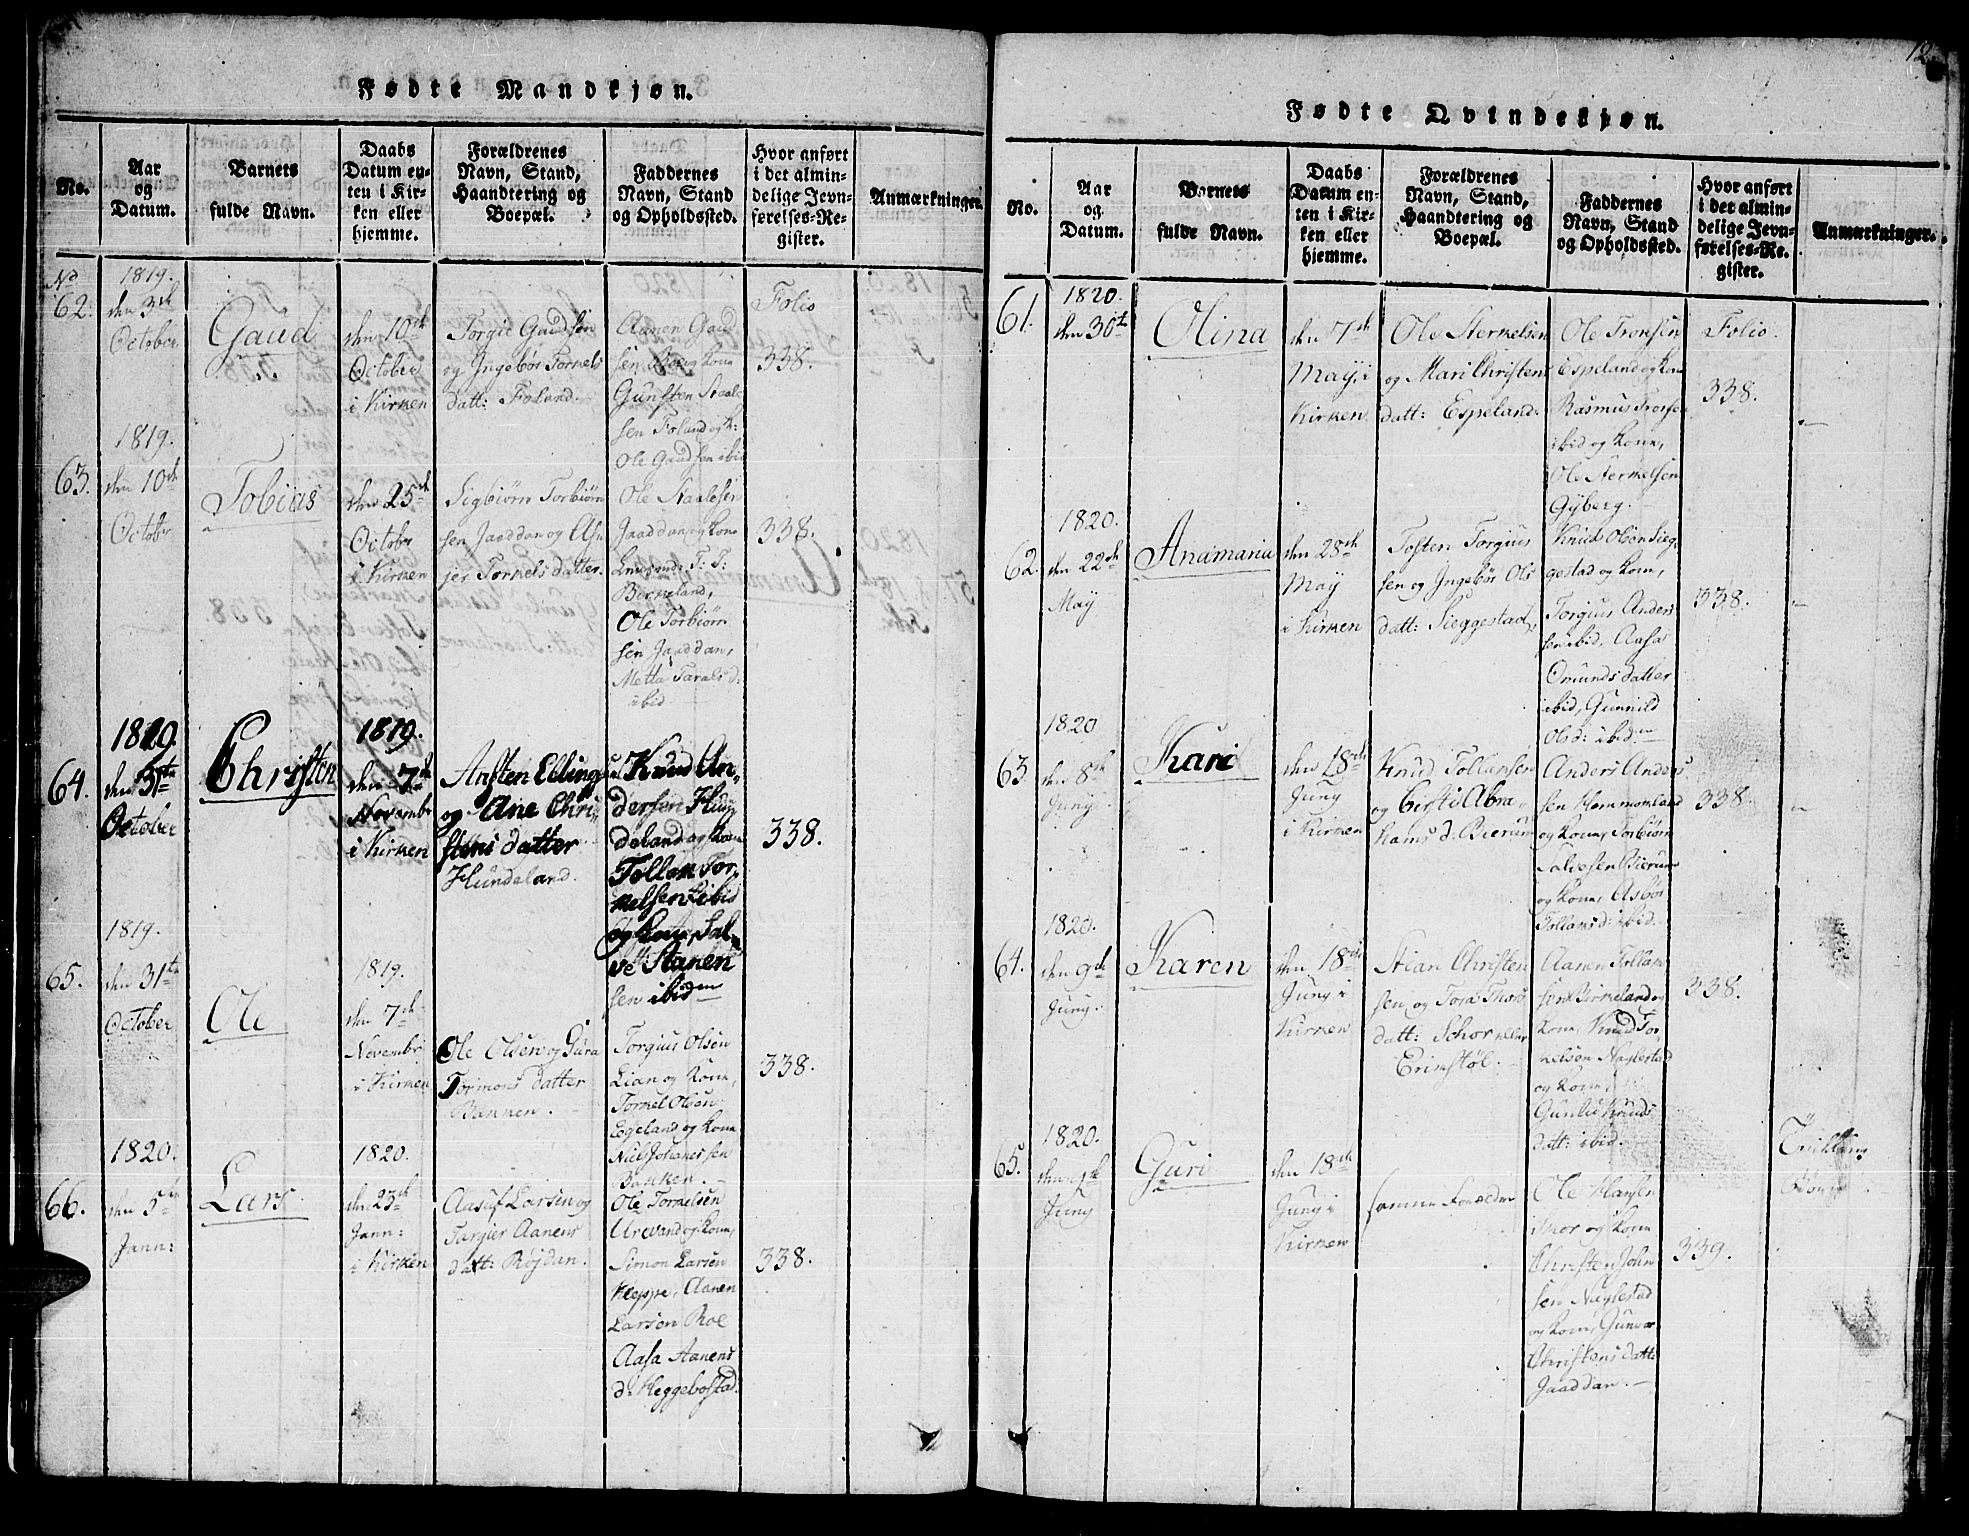 12
Fødte Mandkjøn.
No.
Aar
og
Datum.
Barnets
fulde Navn.
Daabs
Datum en-
ten i Kir-
ken eller
hjemme.
Forældrenes
Navn, Stand,
Haandtering og
Boepæl.
Faddernes
Navn, Stand
og Opholdssted.
Hvor anført
i det almin-
delige Jevn-
førelses-Re-
gister.
Anmærkninger.
No
62.
1819.
den 3de
October
Gaud
den 10de
October
i Kirken
Torgie Gaudsen
og Ingebør Tormels
datt: Foland.
Aanen Gaud
sen Roe og Kone
Gunsten Staale
sen Foland og K:
Ole Gaudsen ibid
Folio
338.
63.
1819.
den 10de
October
Tobias
den 25de
October
i Kirken
Sigbiørn Torbiørn
sen Jaaddan og Asu
jer Tormels datter.
Ole Staalesen
Jaaddan og Kone
T: T:
Birkeland,
Ole Torbiørn
sen Jaaddan,
Metta Tarals d:
ibid
338.
64.
1819.
den 31te
October
Christen
1819.
den 7de
Novembr
i Kirken
Ansten Ellings
og Ane Chri-
stens datter
Hundeland.
Knud An-
dersen Hun-
deland og Kone
Tollan Tor-
melsen ibid
og Kone, Sal-
ve Stanen
sen ibidem
338.
65.
1819.
den 31te
October
Ole
1819.
den 7de
Novembr
i Kirken
Ole Olsen og Gura
Tormons datter
Bakken.
Torgius Olsen
Lian og Kone,
Tormel Olsen
Egeland og Kone
Niels Johanessen
Bakken.
338.
66.
1820.
den 5te
Jann:
Lars
1820.
den 23de
Jann:
i Kirken
Aasuf Larsen og
Targier Aanens
datt: Røjdan.
Ole Tormelsen
Urevand og Kone,
Simon Larsen
Kleppe, Aanen
Larsen Roe
Aasa Aanens
d: Heggebostad.
338.
Fødte Qvindekjøn.
No.
Aar
og
Datum.
Barnets
fulde Navn.
Daabs
Datum en-
ten i Kir-
ken eller
hjemme.
Forældrenes
Navn, Stand,
Haandtering og
Boepæl.
Faddernes
Navn, Stand
og Opholdssted.
Hvor anført
i det almin-
delige Jevn-
førelses-Re-
gister.
Anmærkninger.
61.
1820.
den 30te
Olina
den 7de
May i
Kirken
Ole Sterkelsen
og Mari Christens
datt: Espeland.
Ole Tronsen
Espeland og Kone
Rasmus Tronsen
ibid og Kone,
Ole Sterkelsen
Gyberg.
Folio.
338.
62.
1820.
den 22de
May
Anamaria
den 28de
May
i Kirken
Tosten Torgius
sen og Ingebør Ols
datt: Sieggestad,
Knud Olsen Sieg-
gestad og Kone,
Torgius Anders
sen ibid, Aasa
Omunds datter
ibid, Gunnild
Olsd: ibidem
338.
63
1820
den 8de
Juny
Kari
den 18de
Juny
i Kirken
Knud Tollansen
og Girsti Abra-
hams d: Bierum
Anders Anders
sen Hommomland
og Kone, Torbiørn
Salvesen Bierum
og Kone, Asbør
Tollans d: ibid.
338.
64.
1820.
den 9de
Juny.
Karen
den 18de
Juny i
Kirken
Stian Christen
sen og Tora Thors
datt:
Erikstøl.
Aanen Tollan
sen Birkeland og
Kone, Knud Tor-
kelsen Naglestad
og Kone,
Gunlu Knuds
datt: ibid.
338.
65.
1820.
den 9de
Juny
Guri
den 18de
Juny i
Kirken
samme Forældre
Ole
og Kone
Christen John
sen Naglestad
og Kone, Gunvor
Christens datt:
Jaaddan.
339.
Tvilling